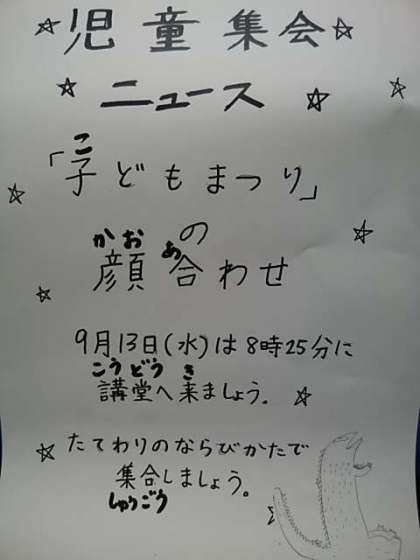 ☆児童集会☆
☆ニュース☆
こ
「子どもまつり」
の
かお あ
顔合わせ
9月13日(水)は8時25分に
こうどう き
講堂へ来ましょう。
たてわりのならびかたで
集合しましょう。
しゅうごう